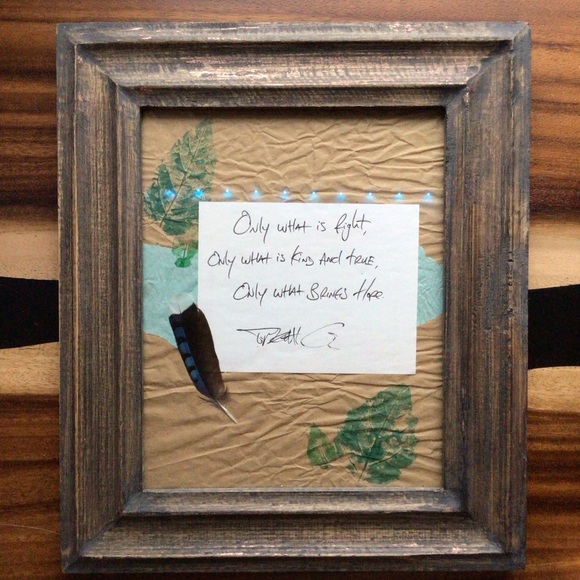 Only what is Right,
Only what is Kind and true,
Only what Brings Hope